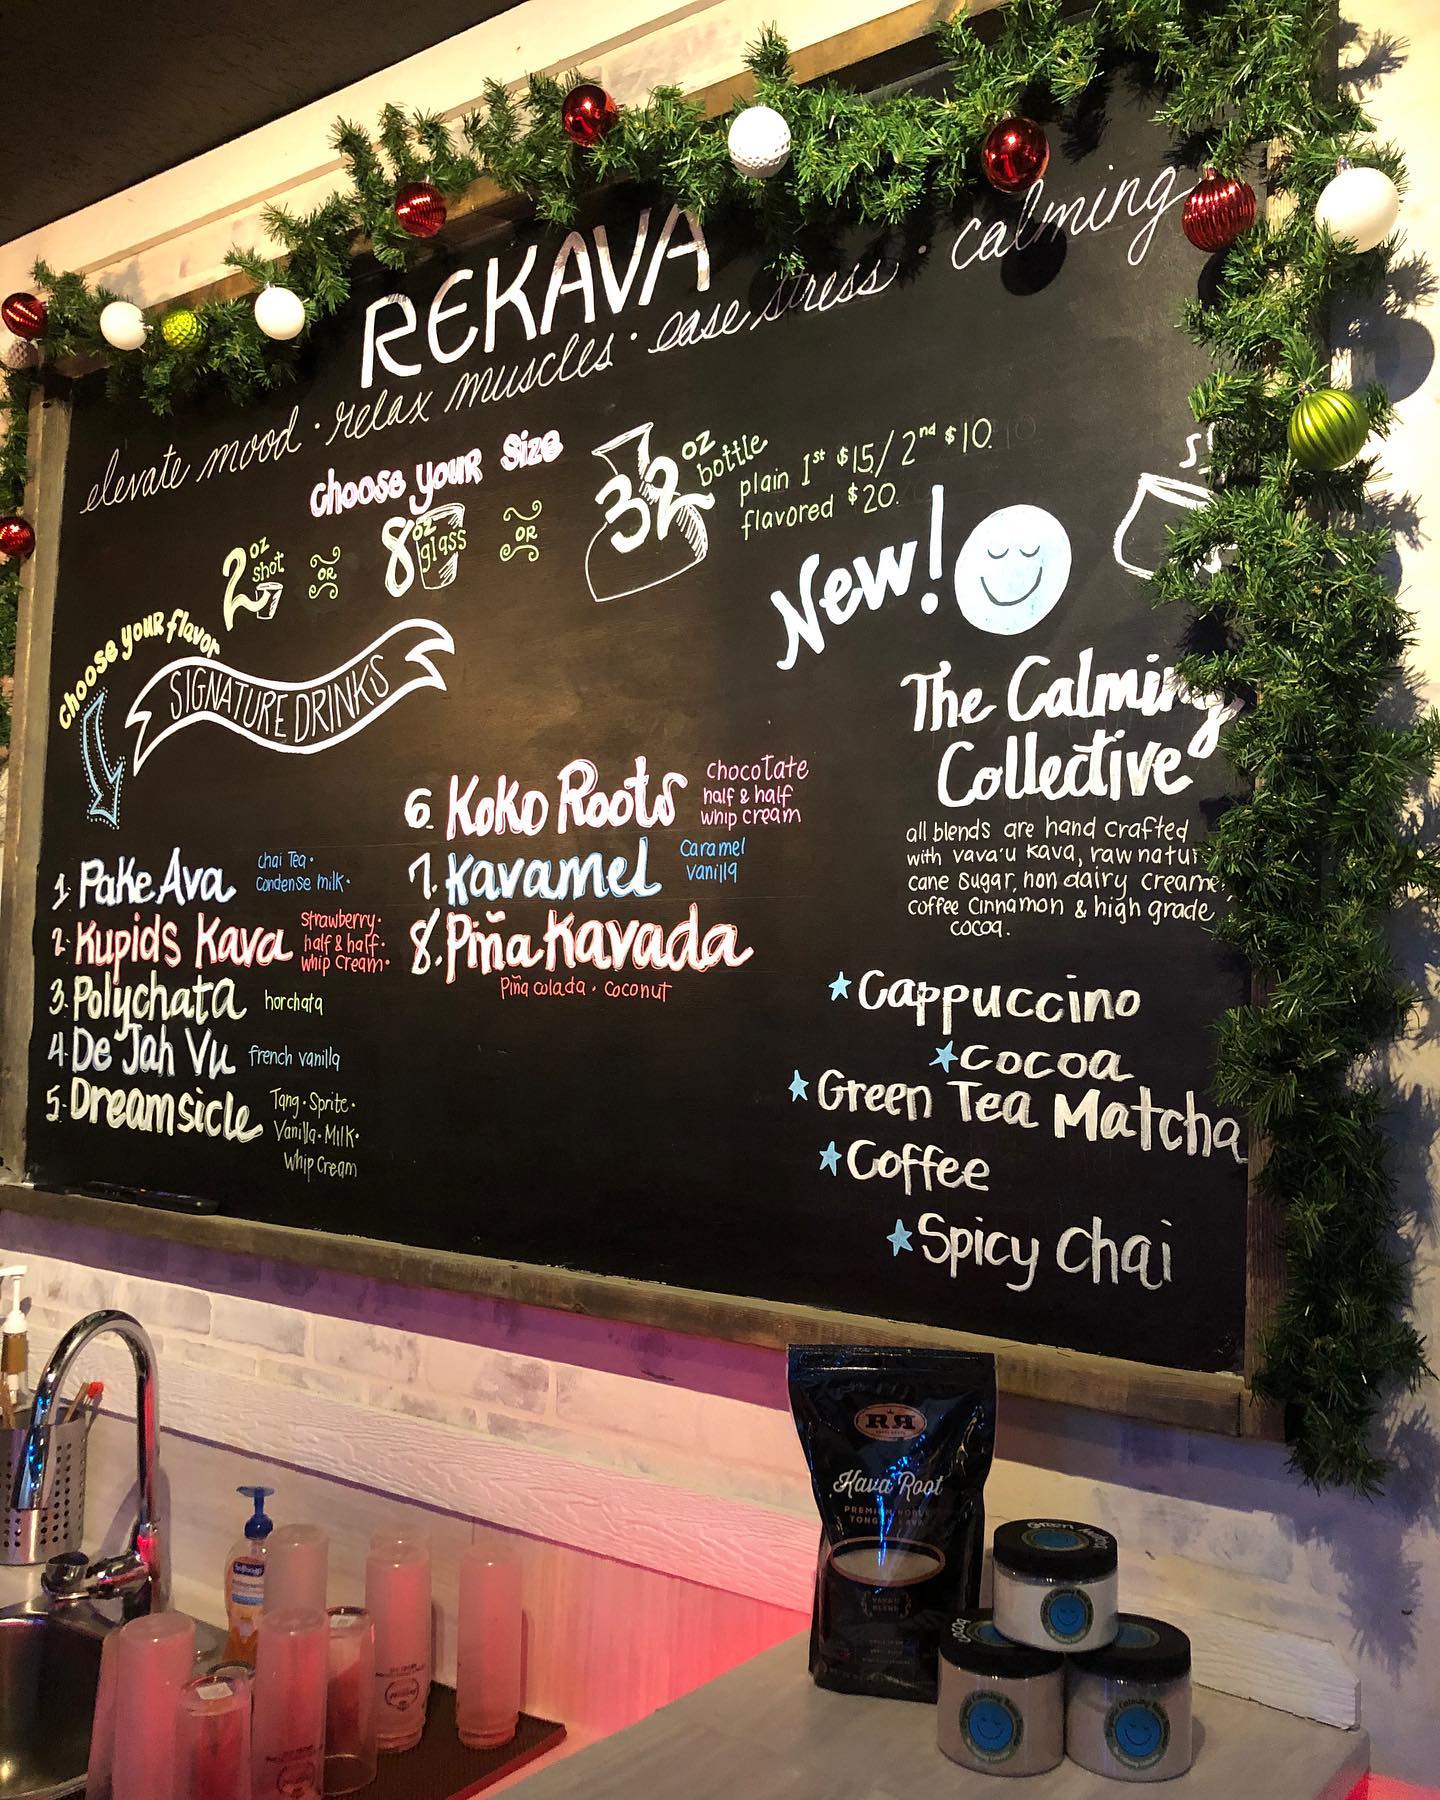 REKAVA
elevate mood · relax muscles · ease stress · calming
choose your size
2 oz shot
OR
8 oz glass
OR
32 oz bottle
plain 1st $15/2nd $10.
flavored $20.
choose your flavor
SIGNATURE DRINKS
1. Pake Ava chai Tea · condense milk ·
2. Kupids Kava strawberry · half & half · whip cream ·
3. Polychata horchata
4. De Jah Vu french vanilla
5. Dreamsicle Tang · Sprite · Vanilla · Milk · whip cream
6. Koko Roots chocolate half & half whip cream
7. Kavamel caramel vanilla
8. Piña Kavada
Piña colada · coconut
New!
The Calming
Collective
all blends are hand crafted
with vava'u kava, raw natur
cane sugar, non dairy creame
coffee cinnamon & high grade
cocoa.
Cappuccino
Cocoa
Green Tea Matcha
Coffee
Spicy Chai
Kava Root
PREMIUM NOBLE
TONGAN KAVA
VAVA'U
BLEND
Green
Cocoa